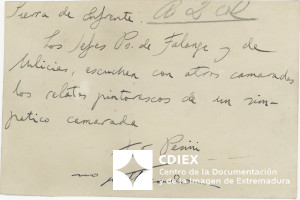 Sierra de Enfrente:
Los Jefes Ps. de Falange y de
Milicias, escuchan con otros camaradas
los relatos pintorescos de un sim-
pático camarada
CDIEX
Centro de la Documentación
y de la Imagen de Extremadura